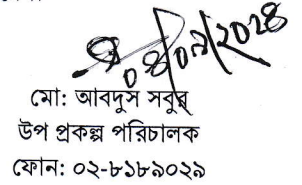 ০৪/০৯/২০২৪
মো: আবদুস সবুর
উপ প্রকল্প পরিচালক
ফোন: ০২-৮১৮৯০২৯